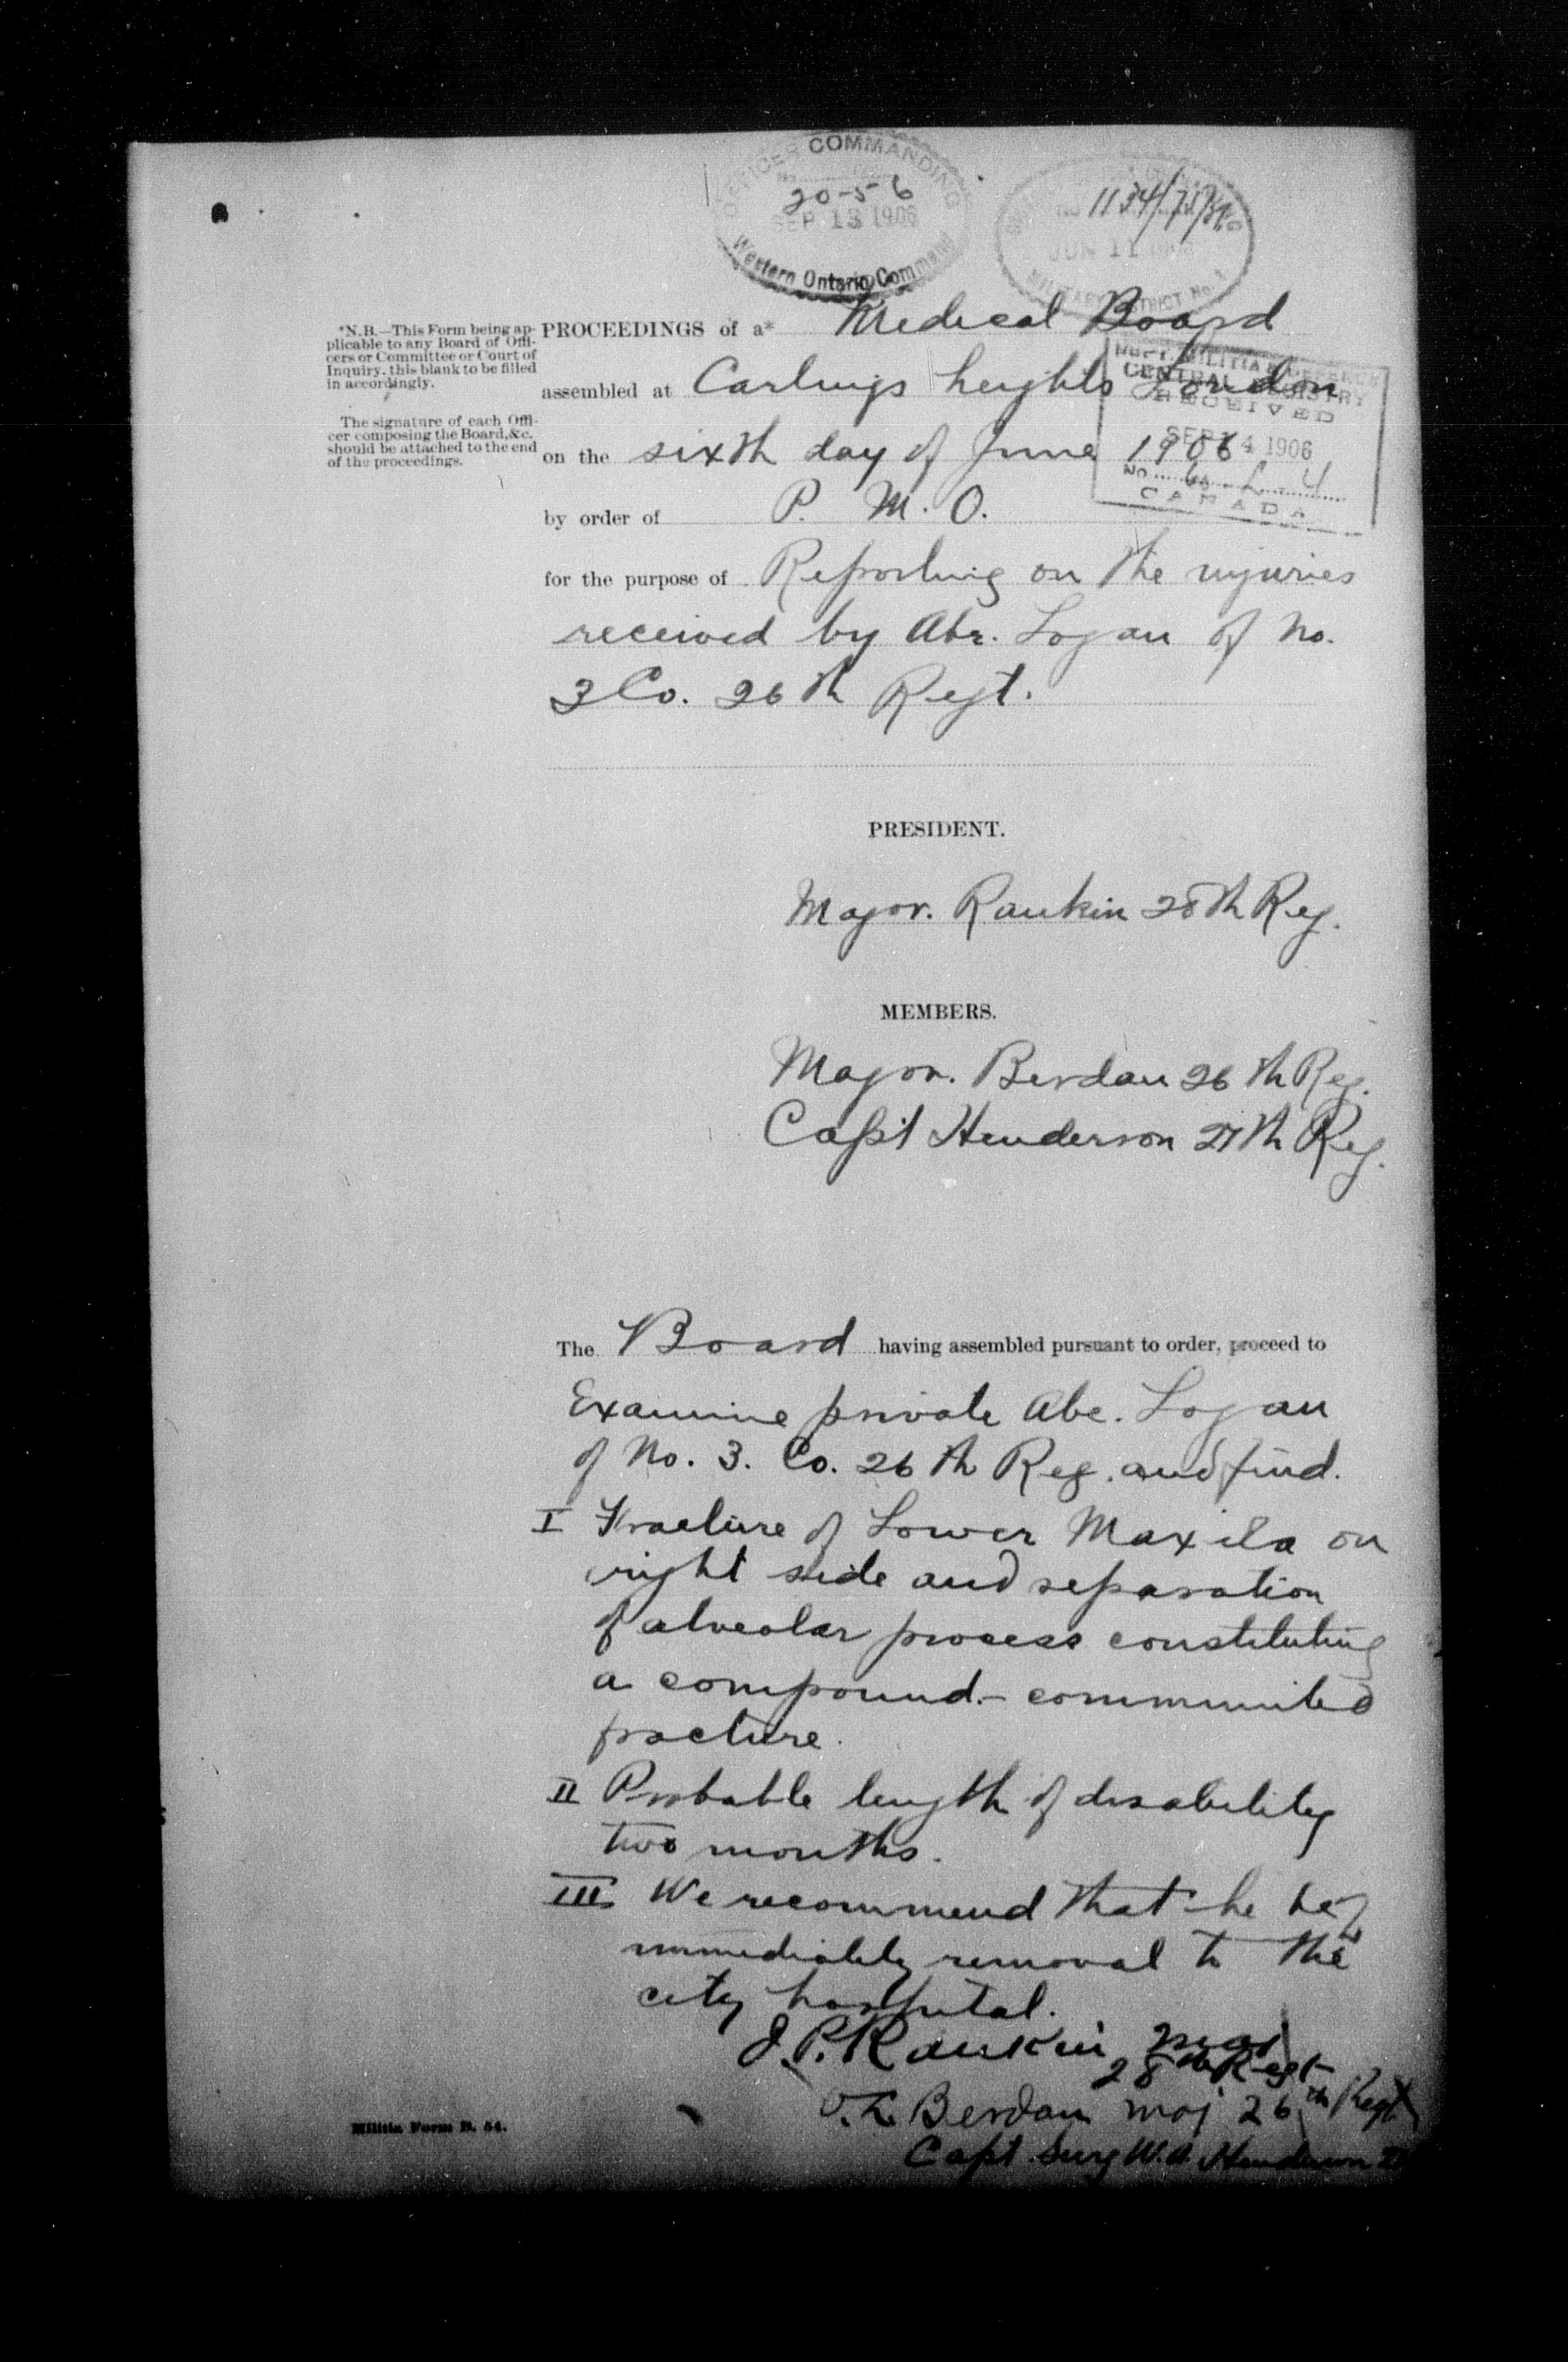 OFFICER COMMANDING
No.
20-5 6
SEP 13 1906
Western Ontario Command
No 1134/75/
JUN 11
MILITARY DISTRICT No. 1
*N.B.—This Form being ap-
plicable to any Board of Offi-
cers or Committee or Court of
Inquiry, this blank to be filled
in accordingly.
The signature of each Offi-
cer composing the Board, &c.
should be attached to the end
of the proceedings.
PROCEEDINGS of a* Medical Board
assembled at Carlings heights London
on the sixth day of June 1906
by order of P. M. O.
DEPT. MILITIA & DEFENCE
CENTRAL REGISTRY
RECEIVED
SEP 14 1906
No
CANADA
for the purpose of Reporting on the injuries
received by Abr. Logan of No.
3 Co. 26th Regt.
PRESIDENT.
Major. Rankin 28th Reg.
MEMBERS.
Major. Berdan 26th Reg.
Capt Henderson 27th Reg.
The Board having assembled pursuant to order, proceed to
Examine private Abe. Logan
of No. 3. Co. 26th Reg. and find.
I Fracture of Lower Maxila on
right side and separation
of alveolar process constituting
a compound - communited
fracture.
II Probable length of disability
two months.
III We recommend that he be
immediately removal to the
city hospital.
J. P. Rankin Maj
28th Regt
Berdan Maj 26th Regt
Capt. Surg W. A. Henderson
Militia Form B. 54.